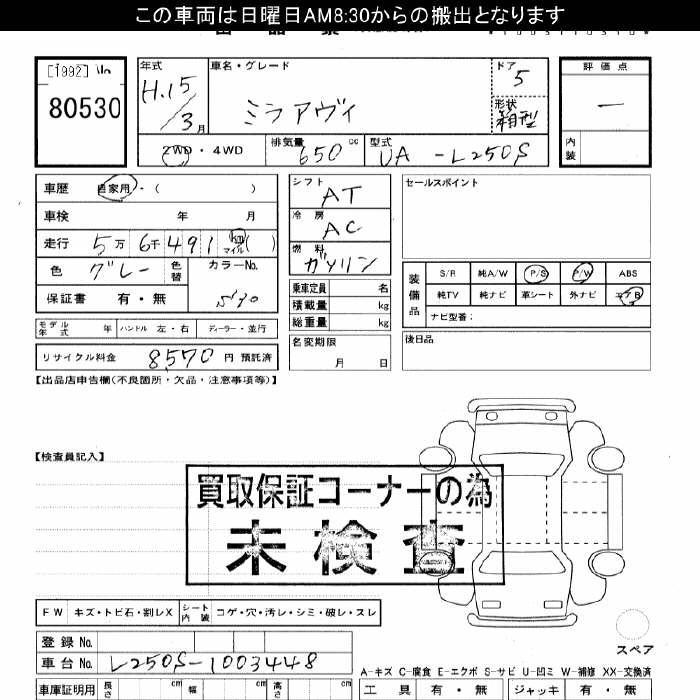 この車両は日曜日AM8:30からの搬出となります
[1992]
80530
年式
H.15/3月
車名・グレード
ミラアヴィ
ドア
5
形状
箱型
評価点
―
内装
2WD・4WD
排気量
650cc
型式
UA-L250S
車歴 自家用・( )
車検 年 月
走行 5万 6千 491 km マイル ( )
色 グレー 色替
カラーNo.
保証書 有・無
シフト
AT
冷房
AC
燃料
ガソリン
乗車定員 名
積載量 kg
総重量 kg
名変期限
月 日
セールスポイント
装備品
S/R 純A/W P/S P/W ABS
純TV 純ナビ 革シート 外ナビ エアB
ナビ型番:
後日品
モデル年式 年 ハンドル 左・右 ディーラー・並行
リサイクル料金 8570 円 預託済
【出品店申告欄(不良箇所・欠品・注意事項等)】
【検査員記入】
買取保証コーナーの為
未検査
FW キズ・トビ石・割レX シート内装 コゲ・穴・汚レ・シミ・破レ・スレ
登録No.
車台No. L250S-1003448
スペア
A-キズ C-腐食 E-エクボ S-サビ U-凹ミ W-補修 XX-交換済
車庫証明用 長さ cm 幅 cm 高さ cm
工具 有・無 ジャッキ 有・無